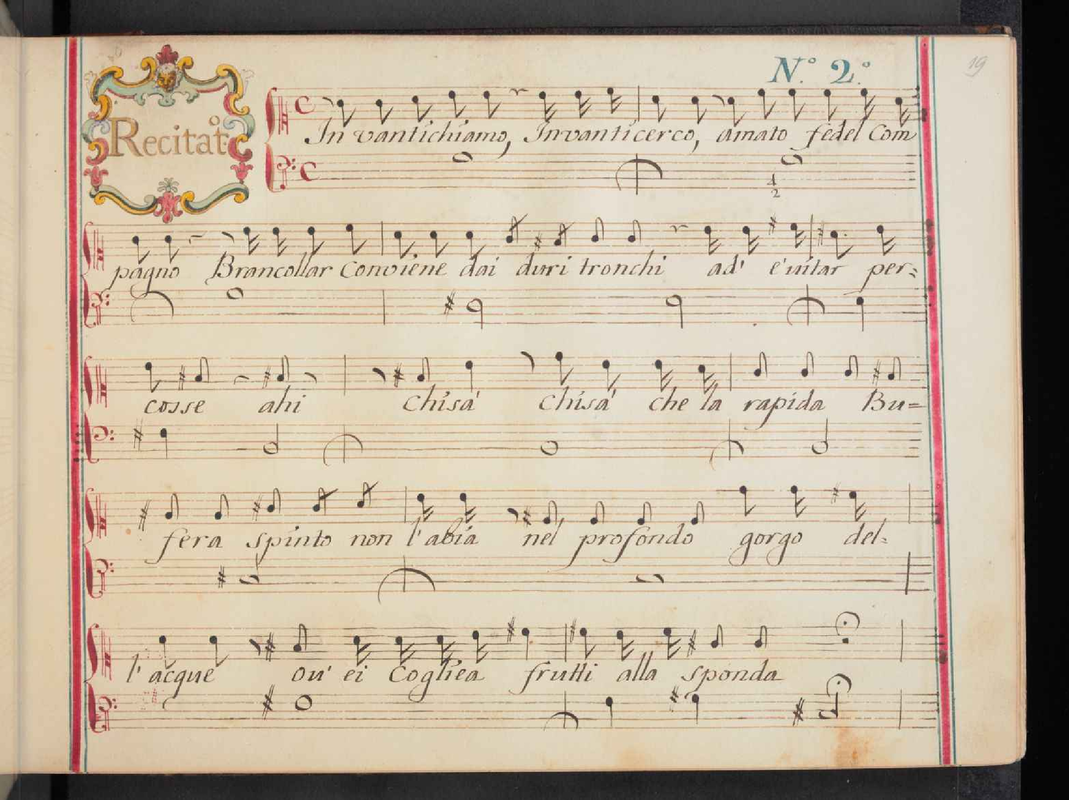 19
N.º 2.º
Recitatº
In vantichiamo, Invanticerco, amato fedel Com
4
2
pagno Brancollar Conviene dai duri tronchi ad' e'uitar per=
cosse ahi chisà chisà che la rapida Bu=
fera spinto non l'abia nel profondo gorgo del=
l'acque ou' ei Cogliea frutti alla sponda